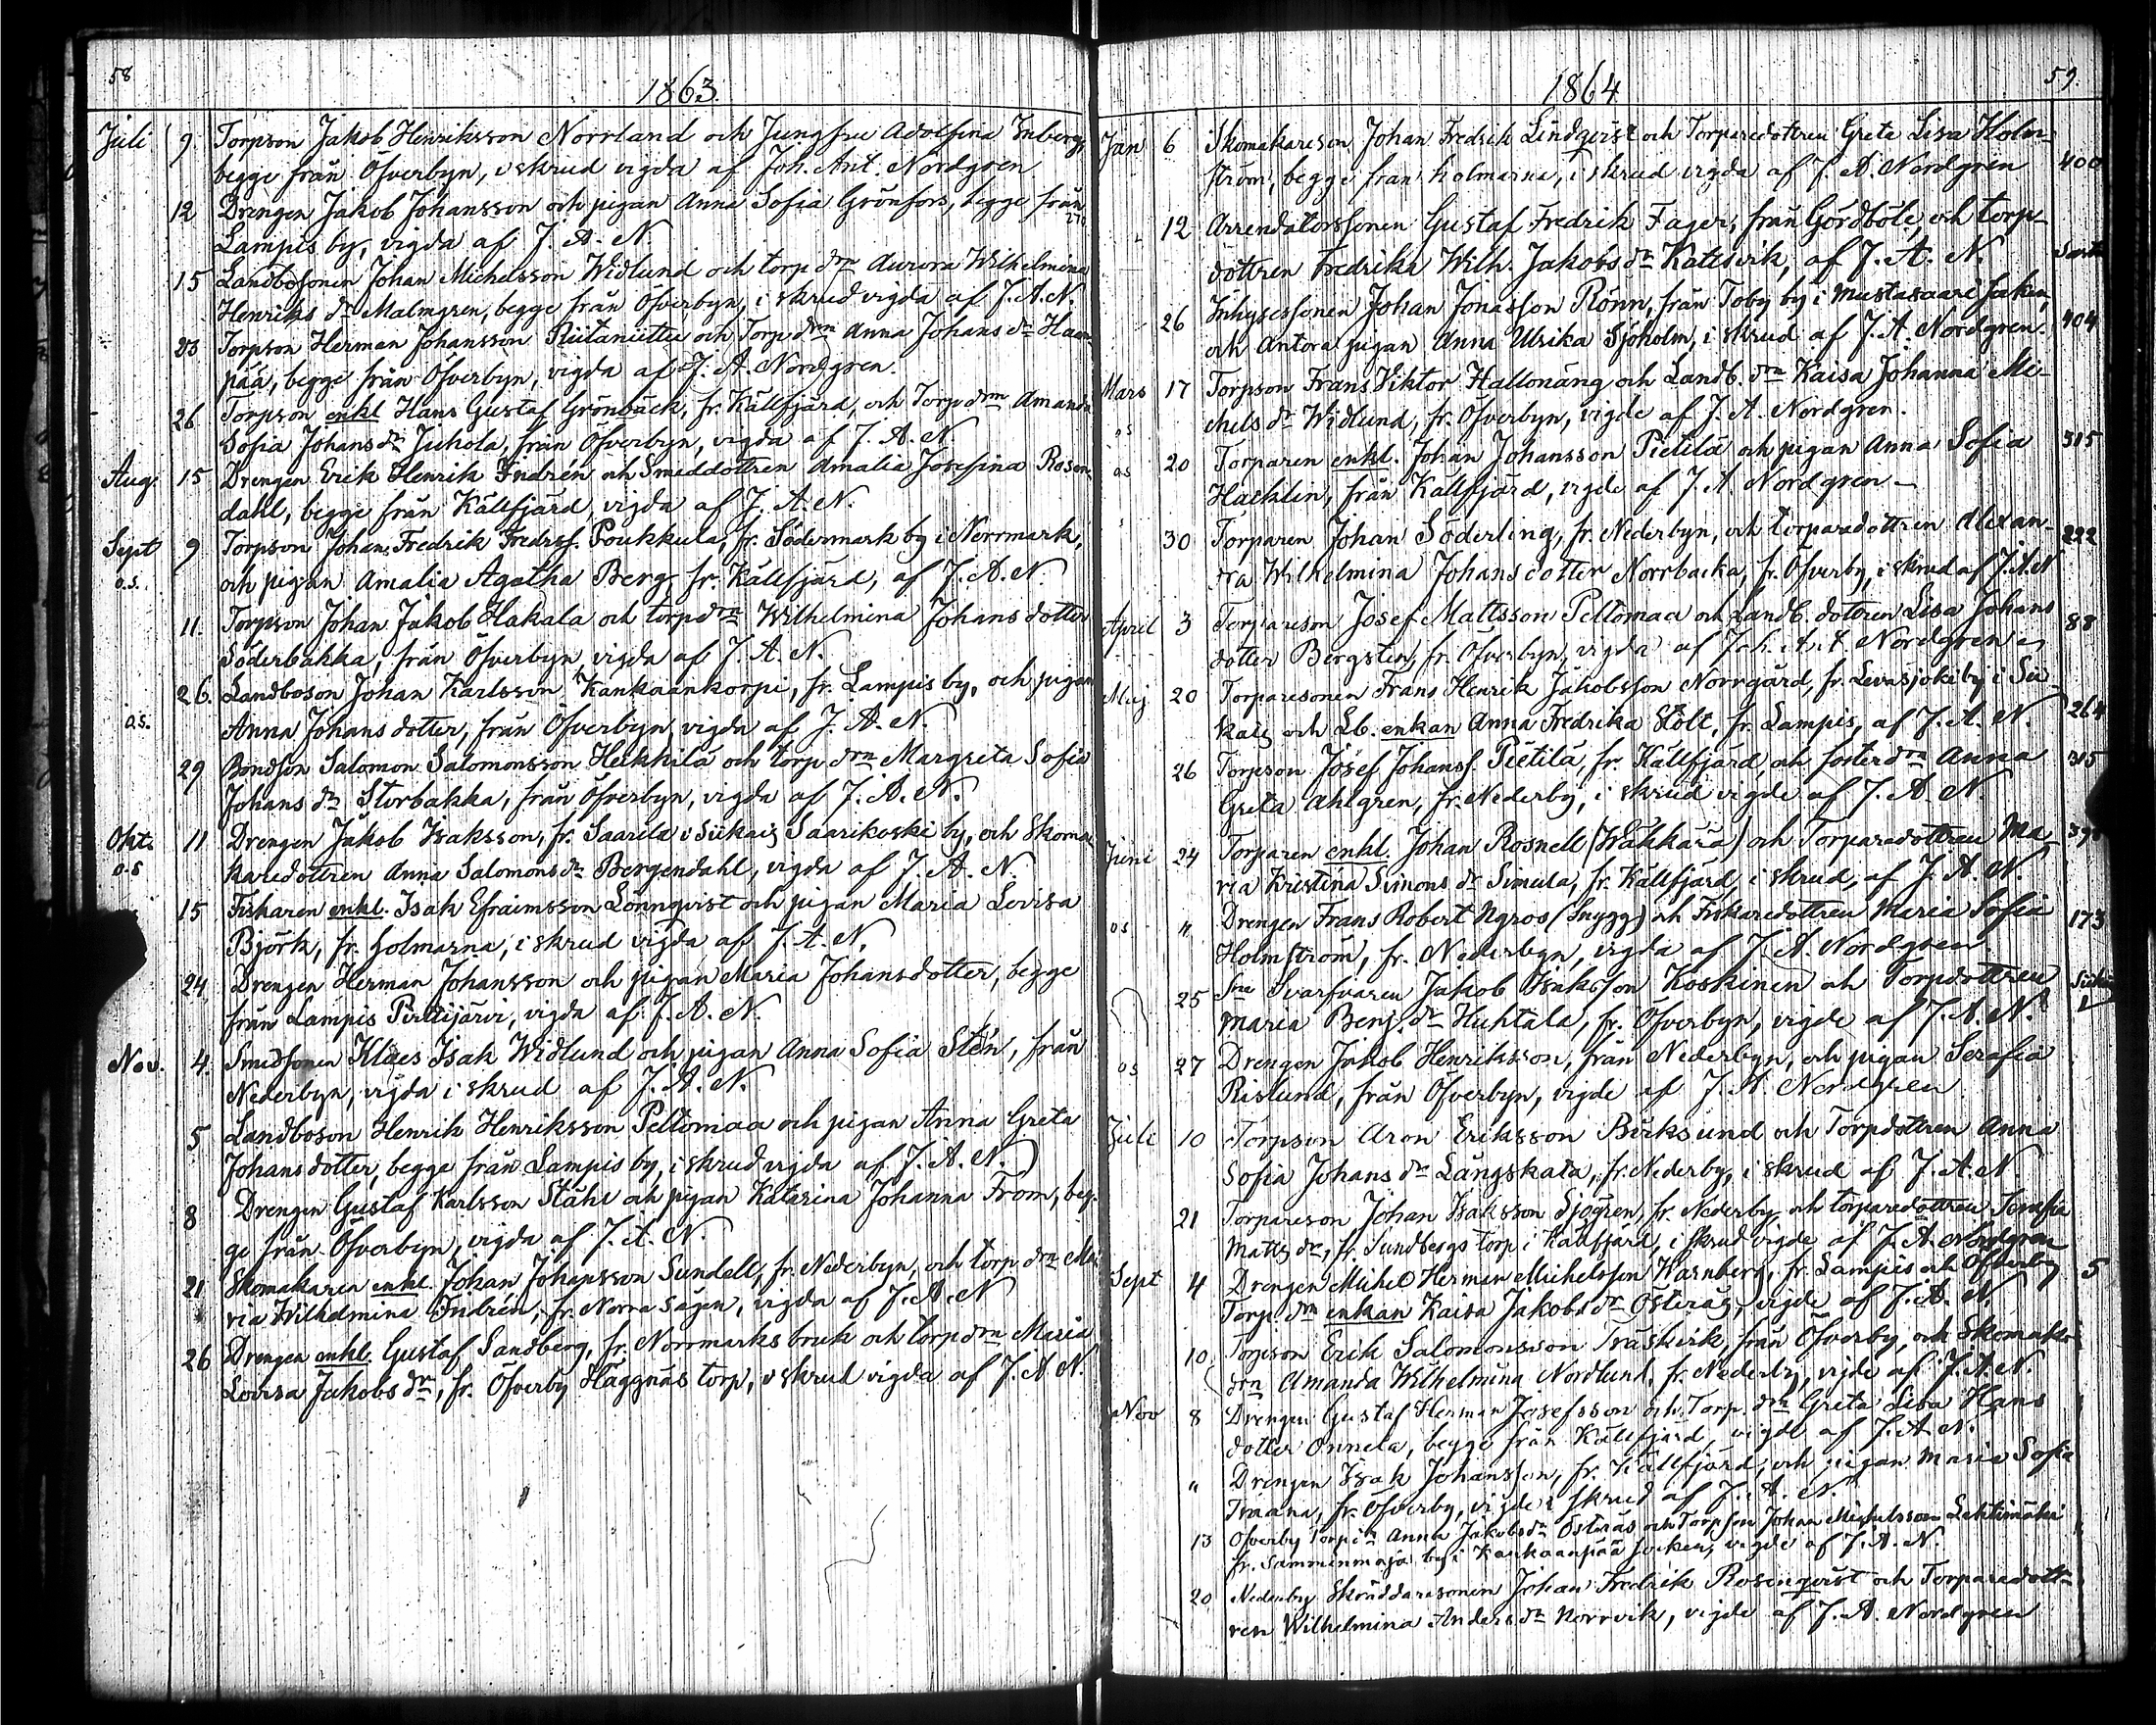 58
1863.
Juli 9. Torpson Jakob Henriksson Norrland och Jungfru Adolfina Inberg,
begge från Öfverbyn, i skrud vigda af Joh. Ant. Nordgren
12 Drengen Jakob Johansson och pigan Anna Sofia Grönfors, begge från
Lampis by, vigda af J. A. N.
15 Landbosonen Johan Michelsson Widlund och torp. drn Aurora Wilhelmina
Henriks dr Malmgren, begge från Öfverbyn, i skrud vigda af J. A. N.
23 Torpson Herman Johansson och Torp drn Anna Johans dr Haan-
pää, begge från Öfverbyn, vigda af J. A. Nordgren.
26 Torpson enkl Hans Gustaf Grönbäck, fr. Källfjärd, och Torp drn Amanda
Sofia Johans dr Juhola, från Öfverbyn, vigda af J. A. N.
Aug. 15 Drengen Erik Henrik Indrén och Smeddottren Amalia Josefina Rosen-
dahl, begge från Källfjärd, vigda af J. A. N.
Sept 9 Torpson Johan Fredrik Fredrss. Poukkula, fr. Södermark by i Norrmark,
o.s. och pigan Amalia Agatha Berg, fr. Källfjärd, af J. A. N.
11. Torpson Johan Jakob Hakala och torp drn Wilhelmina Johans dotter
Söderbakka, från Öfverbyn, vigda af J. A. N.
26. Landboson Johan Karlsson Kankaankorpi, fr. Lampis by, och pigan
o.s. Anna Johans dotter, från Öfverbyn, vigda af J. A. N.
29 Bondson Salomon Salomonsson Heikkilä och torp drn Margreta Sofia
Johans dr Storbakka, från Öfverbyn, vigda af J. A. N.
Okt. 11 Drengen Jakob Isaksson, fr. Saarila i Siikais Saarikoski by, och Skoma-
o.s karedottren Anna Salomons dr Bergendahl, vigda af J. A. N.
15 Fiskaren enkl. Isak Efraimsson Lönnqvist och pigan Maria Lovisa
Björk, fr. holmarna, i skrud vigda af J. A. N.
24 Drengen Herman Johansson och pigan Maria Johansdotter, begge
från Lampis Pirttijärvi, vigda af J. A. N.
Nov. 4. Smedsonen Klaes Isak Widlund och pigan Anna Sofia Stén, från
Nederbyn, vigda i skrud af J. A. N.
5 Landboson Henrik Henriksson Peltomaa och pigan Anna Greta
Johans dotter, begge från Lampis by, i skrud vigda af J. A. N.
8 Drengen Gustaf Karlsson Ståhl och pigan Katarina Johanna From, beg-
ge från Öfverbyn, vigda af J. A. N.
21 Skomakaren enkl. Johan Johansson Sundell, fr. Nederbyn, och torp. drn Ma-
ria Wilhelmina Indrén, fr. Norra sågen, vigda af J. A. N
26 Drengen enkl. Gustaf Sandberg, fr. Norrmarks bruk och torp drn Maria
Lovisa Jakobs dr, fr. Öfverby Häggnäs torp, i skrud vigda af J. A. N.
59.
1864
Jan 6 Skomakareson Johan Fredrik Lindqvist och Torparedottren Greta Lisa Holm-
ström, begge från holmarna, i skrud vigda af J. A. Nordgren 400
12 Arrendatorssonen Gustaf Fredrik Fager, från Gördböle, och torp
dottren Fredrika Wilh. Jakobs dr Kattsvik, af J. A. N.
26 Inhysessonen Johan Jonasson Rönn, från Toby by i Mustasaari soken,
och Antora pigan Anna Ulrika Sjöholm, i skrud af J. A. Nordgren. 404
Mars 17 Torpson Frans Viktor Hallonäng och Landb. drn Kaisa Johanna Mi-
os chels dr Widlund, fr. Öfverbyn, vigde af J. A. Nordgren.
os 20 Torparen enkl. Johan Johansson Pietilä och pigan Anna Sofia 315
Hacklin, från Källfjärd, vigde af J. A. Nordgren
30 Torparen Johan Söderling, fr. Nederbyn, och torparedottren Alexan- 222
dra Wilhelmina Johans dotter Norrbacka, fr. Öfverby, i skrud af J. A. N
April 3 Torpareson Josef Mattsson Peltomaa och Landb. dottren Lisa Johans 88
dotter Bergsten, fr. Öfverbyn, vigda af Joh. Ant Nordgren
Maj 20 Torparesonen Frans Henrik Jakobsson Norrgård, fr. Levasjoki by i Sii
kais och Lb. enkan Anna Fredrika Stolt, fr. Lampis, af J. A. N. 264
26 Torpson Josef Johanss. Pietilä, fr. Källfjärd, och fosterdrn Anna 315
Greta Ahlgren, fr. Nederby, i skrud vigde af J. A. N.
Juni 24 Torparen enkl. Johan Rosnell (Wäkkärä) och Torparedottren Ma-
ria Kristina Simons dr Simula, fr. Källfjärd, i skrud, af J. A. N.
os " Drengen Frans Robert Ngros (Snygg) och Fiskaredottren Maria Sofia 173
Holmström, fr. Nederbyn, vigda af J. A. Nordgren.
25 Sne Svarfvaren Jakob Isaksson Koskinen och Torpdottren
Maria Benj. dr Huhtala, fr. Öfverbyn, vigde af J. A. N.
os 27 Drengen Jakob Henriksson, från Nederbyn, och pigan Serafia
Rislund, från Öfverbyn, vigde af J. A. Nordgren
Juli 10 Torpson Aron Eriksson Birksund och Torpdottren Anna
Sofia Johans dr Långskata, fr. Nederby, i skrud af J. A. N
21 Torpareson Johan Isaksson Sjögren, fr. Nederby, och torparedottren Serafia
Matts dr, fr. Sundbergs torp i Källfjärd, i skrud vigde af J. A. Nordgren
Sept 4 Drengen Michel Herman Michelsson Warnberg, fr. Lampis och Öfverby 5
Torp. drn enkan Kaisa Jakobs dr Österäs, vigde af J. A. N.
10 Torpson Erik Salomonsson Träskvik, från Öfverby, och Skomak.
drn Amanda Wilhelmina Nordlund, fr. Nederby, vigde af J. A. N.
Nov 8 Drengen Gustaf Herman Josefsson och Torp. drn Greta Lisa Hans
dotter Onnela, begge från Källfjärd, vigde af J. A. N.
" Drengen Isak Johansson, fr. Källfjärd, och pigan Maria Sofia
Traana, fr. Öfverby, vigde i skrud af J. A. N.
13 Öfverby Anna Jakobsdr Österäs och Torpson Johan Michelsson Lehtimäki
fr. by i Kankaanpää socken, vigde af J. A. N.
20 Nederby Skräddaresonen Johan Fredrik Rosenqvist och Torparedott-
ren Wilhelmina Anders dr Norrvik, vigde af J. A. Nordgren